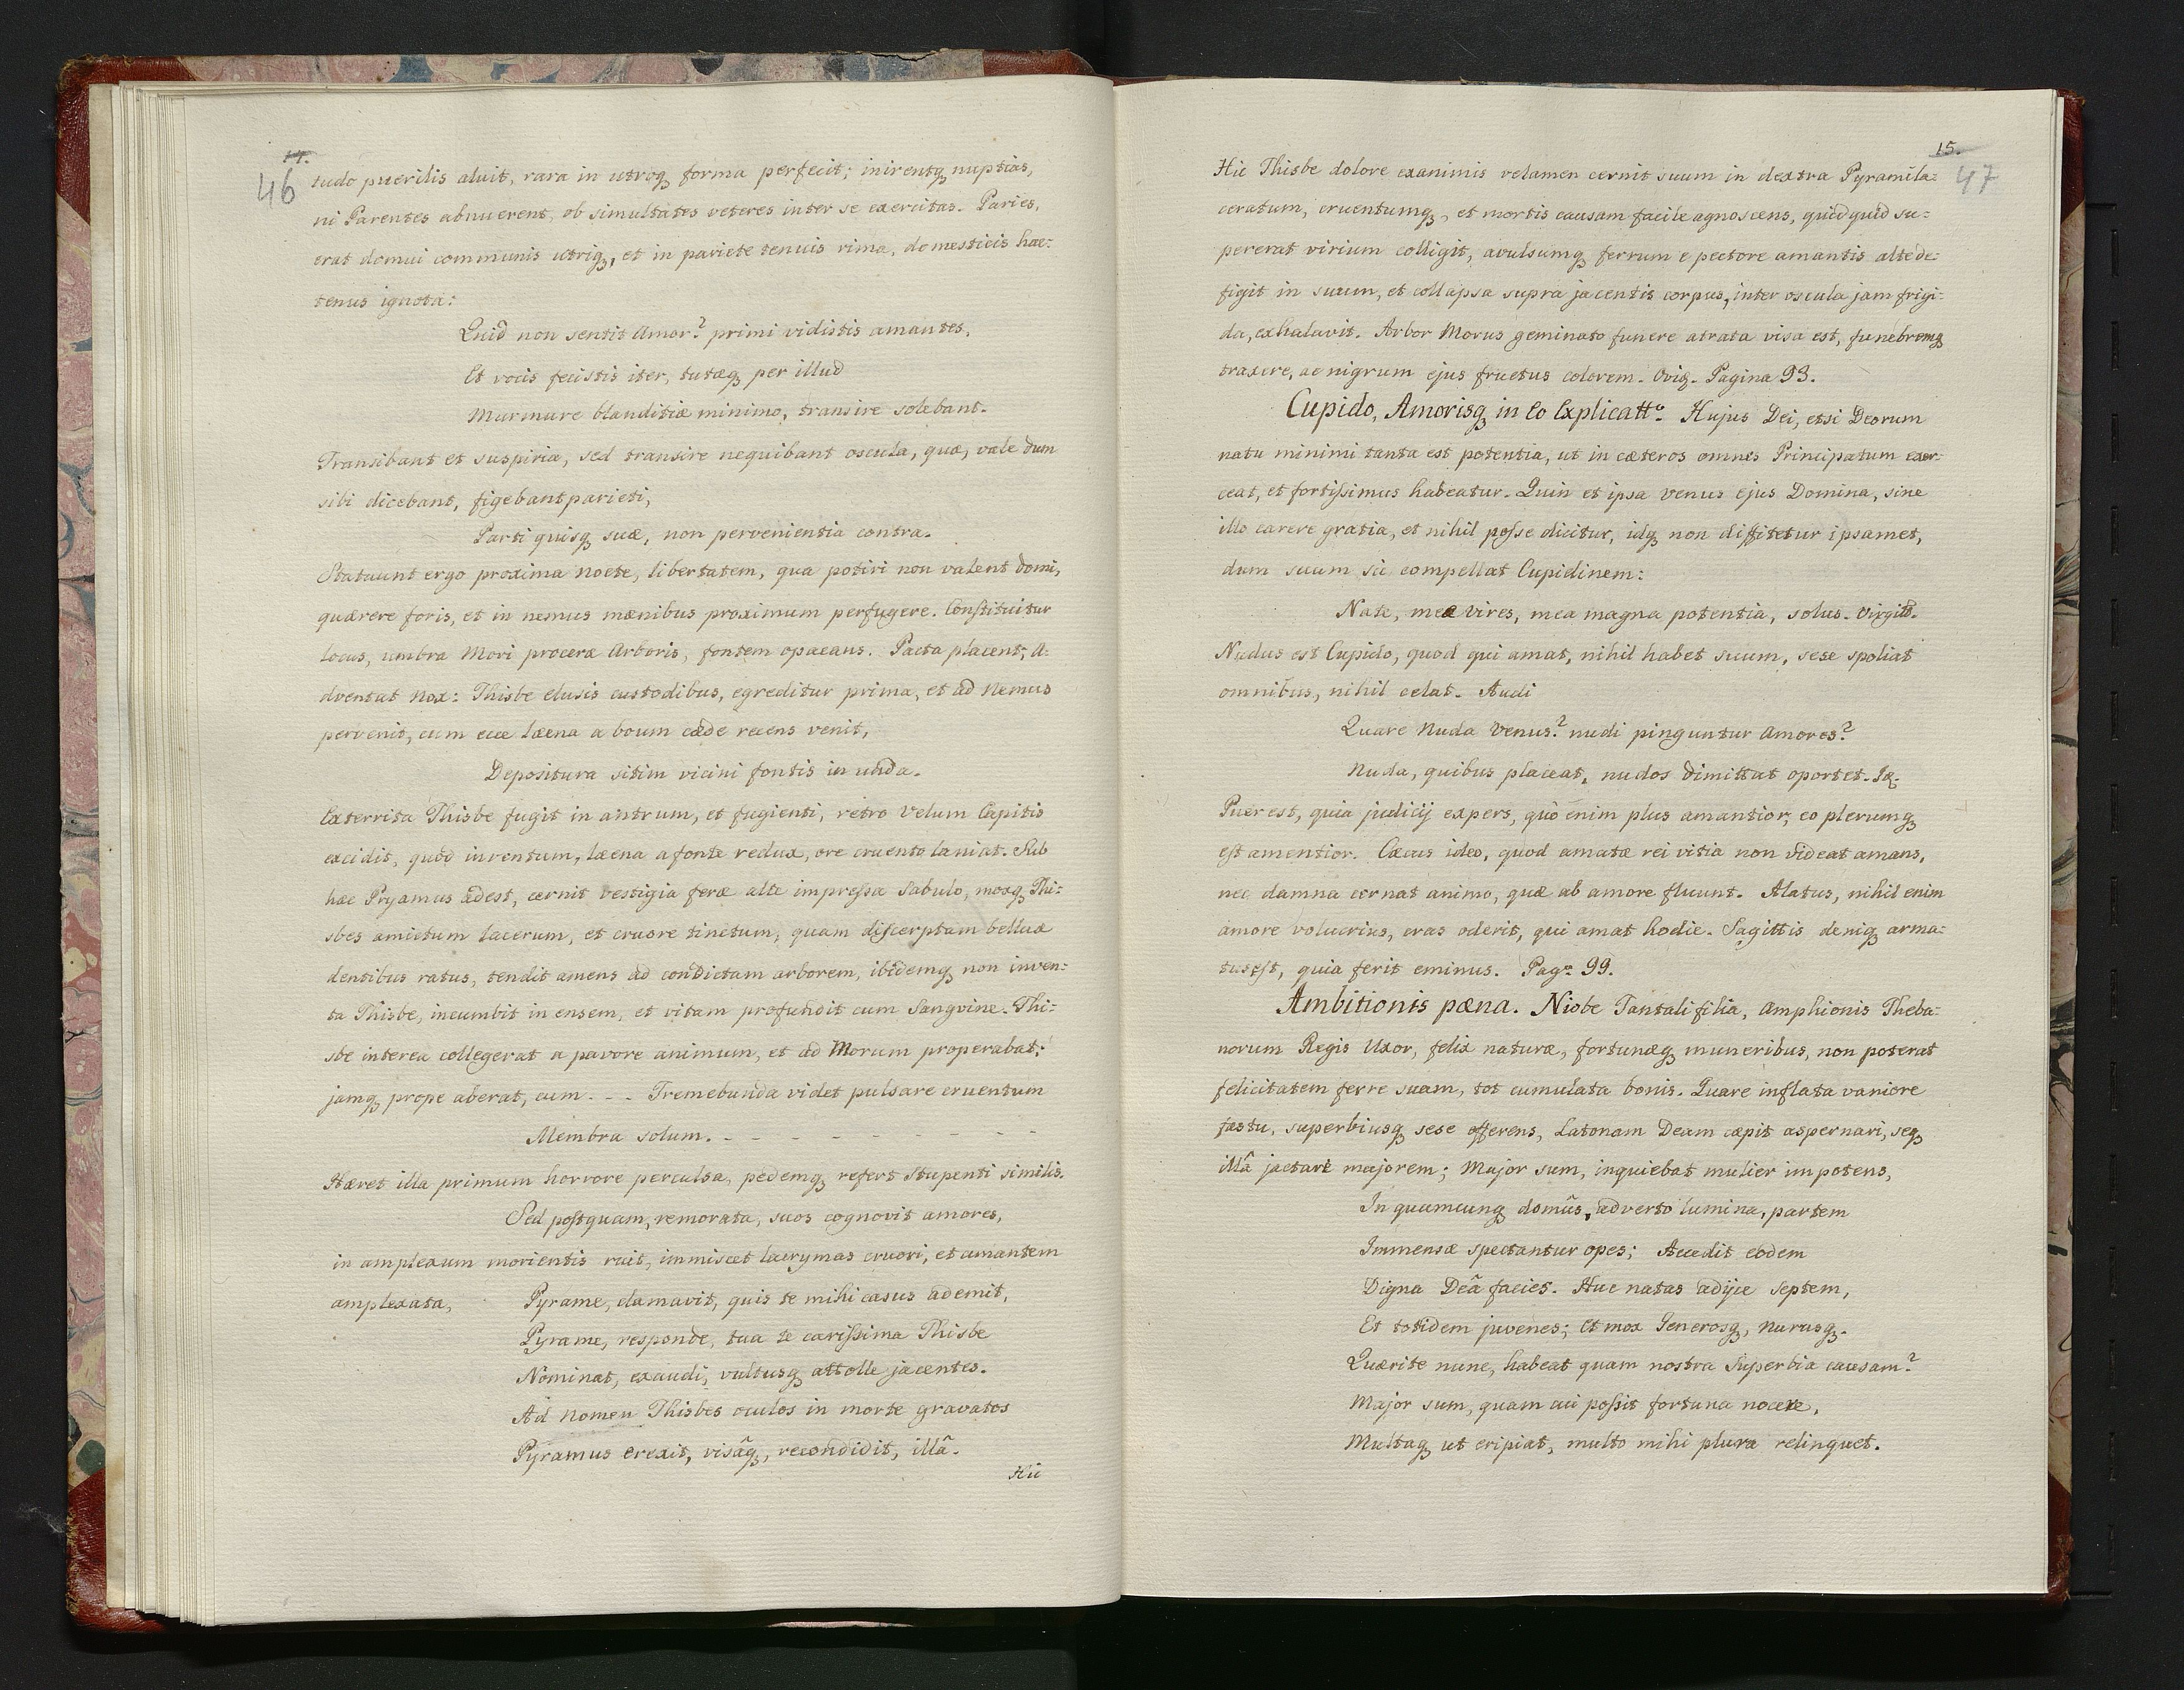 14.
46
tudo puerilis aluit, rara in utroq₃ forma perfecit; inirentq₃ nuptias,
ni Parentes abnuerent, ob simultates veteres inter se exercitas. Paries,
erat domui communis utriq₃, et in pariete tenuis rima, domesticis hac=
tenus ignota:
Quid non sentit Amor? primi vidistis amantes,
Et vocis fecistis iter, tutæq₃ per illud
Murmure blanditiæ minimo, transire solebant.
Transibant et suspiria, sed transire nequibant oscula, quæ, vale dum
sibi dicebant, figebant parieti,
Parti quisq₃ suæ, non pervenientia contra.
Statuunt ergo proxima Nocte, libertatem, qua potiri non valent domi,
quærere foris, et in nemus mænibus proximum perfugere. Constituitur
locus, umbra Mori proceræ Arboris, fontem opacans. Pacta placent; A=
dventat Nox: Thisbe elusis custodibus, egreditur prima, et ad Nemus
pervenit, cum ecce Læena a boum cæde recens venit,
Depositura sitim vicini fontis in unda.
Exterrita Thisbe fugit in antrum, et fugienti, retro Velum Capitis
excidit, quod inventum, læena a fonte redux, ore cruento laniat. Sub
hæc Pryamus adest, cernit vestigia feræ alte impressa Sabulo, moxq₃ Thi=
sbes amictum lacerum, et cruore tinctum; quam discerptam belluæ
dentibus ratus, tendit amens ad condictam arborem, ibidemq₃ non inven=
ta Thisbe, incumbit in ensem, et vitam profundit cum Sangvine. Thi=
sbe interea collegerat a pavore animum, et ad Morum properabat;
jamq₃ prope aberat, cum - - - Tremebunda videt pulsare cruentum
Membra solum. - - - - - - - - -
Hæret illa primum horrore perculsa, pedemq₃ refert Stupenti similis.
Sed postquam, remorata, suos cognovit amores,
in amplexum morientis ruit, immiscet lacrymas cruori, et amantem
amplexata, Pyrame, clamavit, quis te mihi casus ademit,
Pyrame, responde, tua te carissima Thisbe
Nominat, exaudi, vultusq₃ attolle jacentes.
Ad Nomen Thisbes oculos in morte gravatos
Pyramus erexit, visâq₃, recondidit, illâ.
Hic
15.
47
Hic Thisbe dolore exanimis velamen cernit suum in dextra Pyrami la=
ceratum, cruentumq₃, et mortis causam facile agnoscens, quidquid su=
pererat virium colligit, avulsumq₃ ferrum e pectore amantis alte de=
figit in suum, et collapsa supra jacentis corpus, inter oscula jam frigi=
da, exhalavit. Arbor Morus geminato funere atrata visa est, funebremq₃
traxere, ac nigrum ejus fructus colorem. Oviq. Pagina 93.
Cupido, Amorisq₃ in Eo Explicattº. Hujus Dei, etsi Deorum
natu minimi tanta est potentia, ut in cæteros omnes Principatum exer=
ceat, et fortissimus habeatur. Quin et ipsa Venus ejus Domina, sine
illo carere gratia, et nihil posse dicitur, idq₃ non diffitetur ipsamet,
dum suum sic compellat Cupidinem:
Nate, meæ vires, mea magna potentia, solus. Virgili.
Nudus est Cupido, quod qui amat, nihil habet suum, sese spoliat
omnibus, nihil celat. Audi
Quare Nuda Venus? nudi pinguntur Amores?
Nuda, quibus placeat, nudos dimittat oportet.
Puer est, quia judicij expers, quò enim plus amantior, eo plerumq₃
est amentior. Cæcus ideo, quod amatæ rei vitia non videat amans,
nec damna cernat animo, quæ ab amore fluunt. Alatus, nihil enim
amore volucrius, cras oderit, qui amat hodie. Sagittis deniq₃ arma=
tus est, quia ferit eminus. Pagª 99.
Ambitionis pæna. Niobe Tantali filia, Amphionis Theba=
norum Regis Uxor, felix naturæ, fortunæq₃ muneribus, non poterat
felicitatem ferre suam, tot cumulata bonis. Quare inflata vaniore
fastu, superbiusq₃ sese efferens, Latonam Deam cæpit aspernari, seq₃
illâ jactare majorem; Major sum, inquiebat mulier impotens,
In quamcunq₃ domûs, adverto lumina, partem
Immensæ spectantur opes; Accedit eodem
Digna Deâ facies. Huc natas adijce septem,
Et totidem juvenes; et mox Generosq₃, Nurusq₃.
Quærite nunc, habeat quam nostra Superbia causam?
Major sum, quam cui possit fortuna nocere,
Multaq₃ ut eripiat, multo mihi plura relinquet.